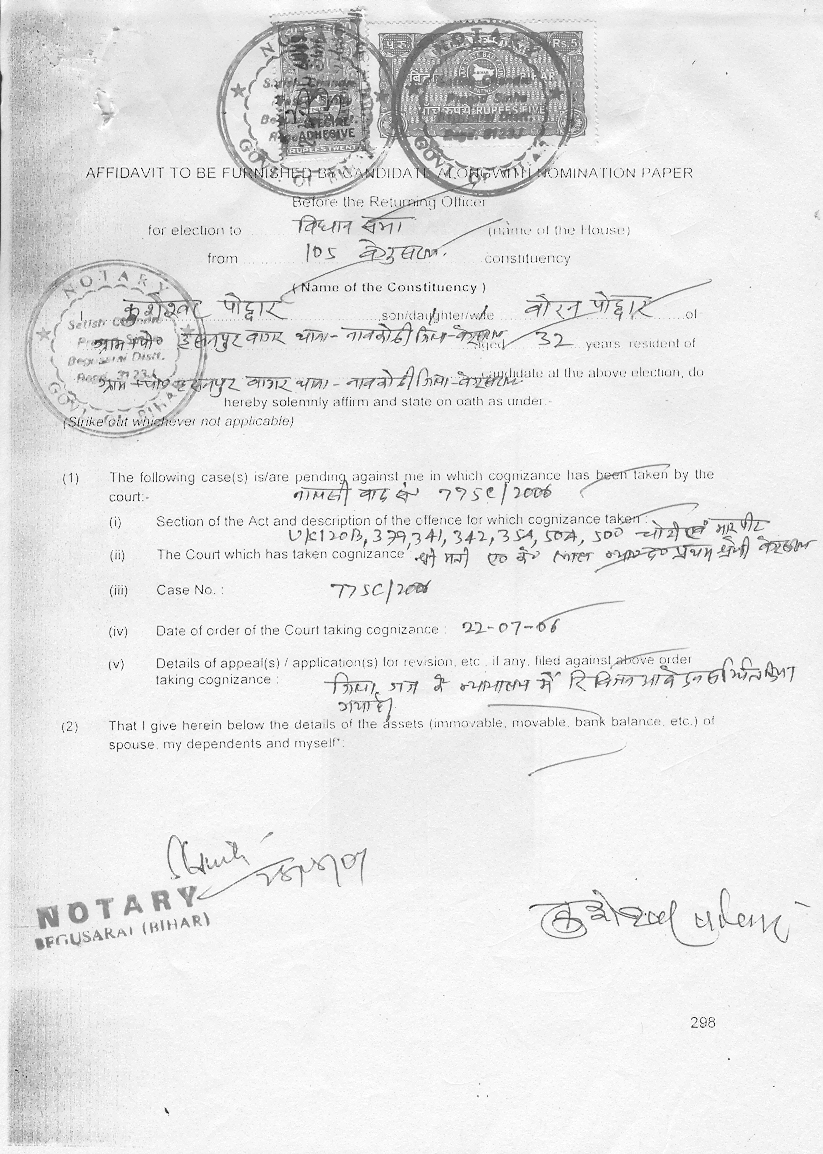 NOTARY
GOVT. OF BIHAR
ADHESIVE
RUPEES TWENTY
NOTARY
BIHAR
RUPEES FIVE
Begu. 31235
GOVT. OF BIHAR
AFFIDAVIT TO BE FURNISHED BY CANDIDATE ALONGWITH NOMINATION PAPER
Before the Returning Officer
for election to विधान सभा (name of the House)
from 105 बेगुसराय constituency
( Name of the Constituency )
NOTARY
Begusarai Distt.
GOVT. OF BIHAR
कुशेश्वर पोद्दार son/daughter/wife पोद्दार of
थाना - नावकोठी जिला - बेगुसराय aged 32 years resident of
थाना - नावकोठी जिला - बेगुसराय candidate at the above election, do
hereby solemnly affirm and state on oath as under:-
(Strike out whichever not applicable)
(1) The following case(s) is/are pending against me in which cognizance has been taken by the
court:- 775C/2006
(i) Section of the Act and description of the offence for which cognizance taken :
120B, 379, 341, 342, 354, 504, 500 चोरी एवं मार पीट
(ii) The Court which has taken cognizance प्रथम श्रेणी बेगुसराय
(iii) Case No. : 775C/2006
(iv) Date of order of the Court taking cognizance : 22-07-06
(v) Details of appeal(s) / application(s) for revision, etc., if any, filed against above order
taking cognizance : जिला जज के न्यायालय में
गया है।
(2) That I give herein below the details of the assets (immovable, movable, bank balance, etc.) of
spouse, my dependents and myself*:
NOTARY
BEGUSARAI (BIHAR)
298